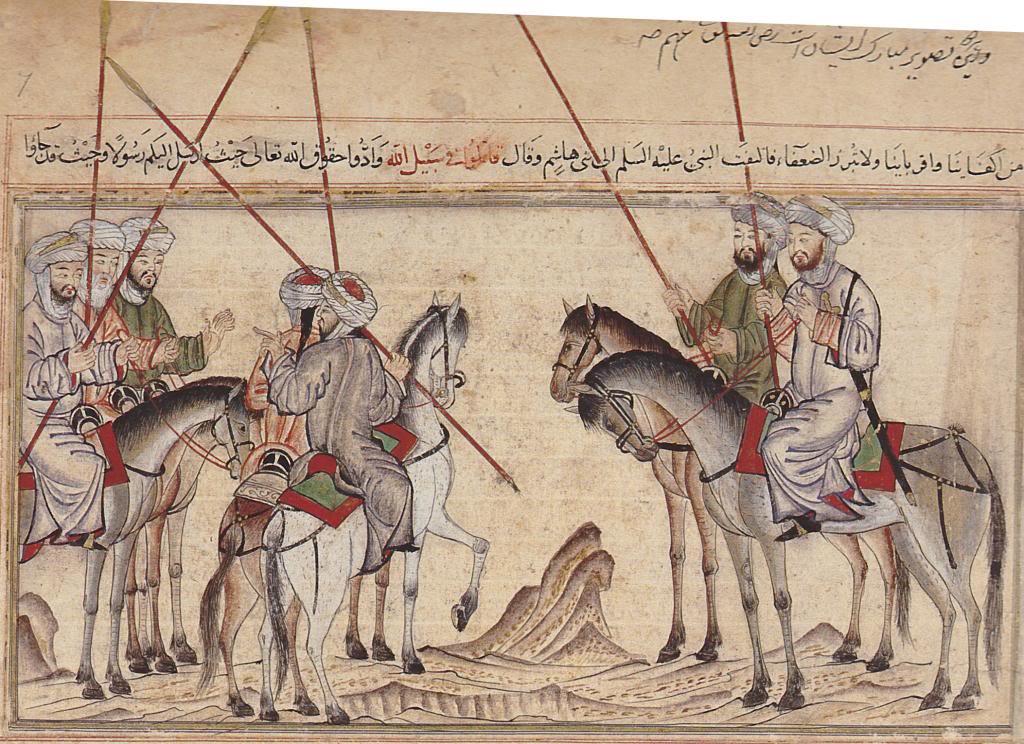 واین تصویر مبارک ایشان است رضی عنهم
من اكفاينا واقرباينا ولا تبرز الضعفاء فالتفت النبي عليه السلم الى بني هاشم وقال قاتلوا في سبيل الله وادوا حقوق الله تعالى حيث ارسل اليكم رسولا وحيث قد جاؤا